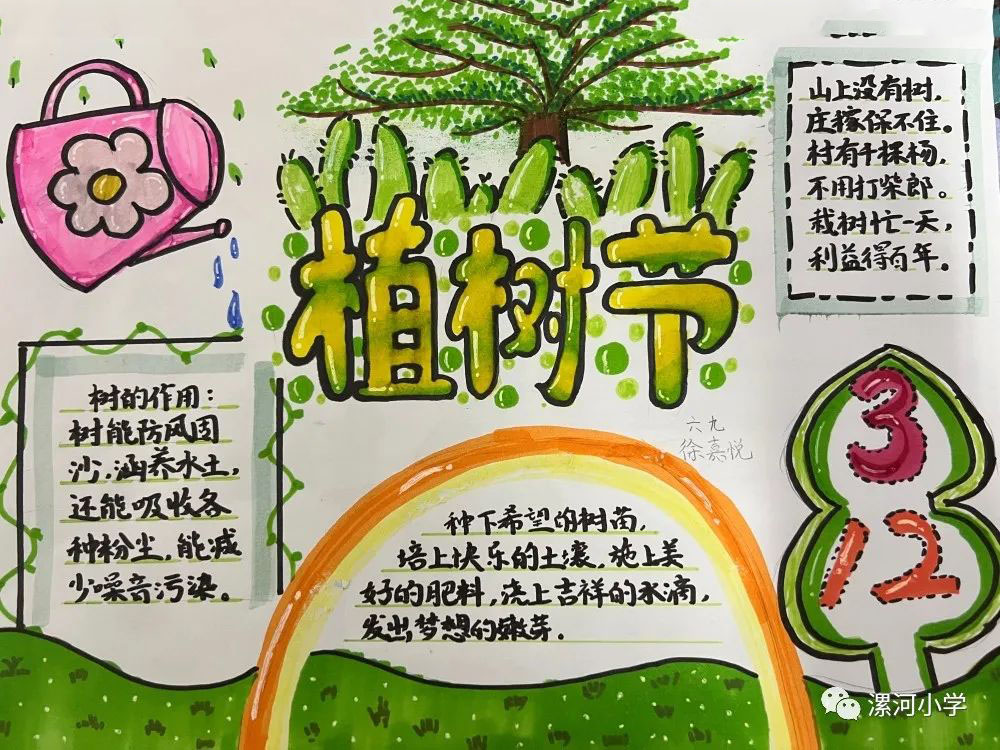 山上没有树，
庄稼保不住。
村有千棵杨，
不用打柴郎。
栽树忙一天，
利益得百年。
植树节
树的作用：
树能防风固
沙，涵养水土，
还能吸收各
种粉尘，能减
少噪音污染。
六九
徐嘉悦
种下希望的树苗，
培上快乐的土壤，施上美
好的肥料，浇上吉祥的水滴，
发出梦想的嫩芽。
3
12
漯河小学